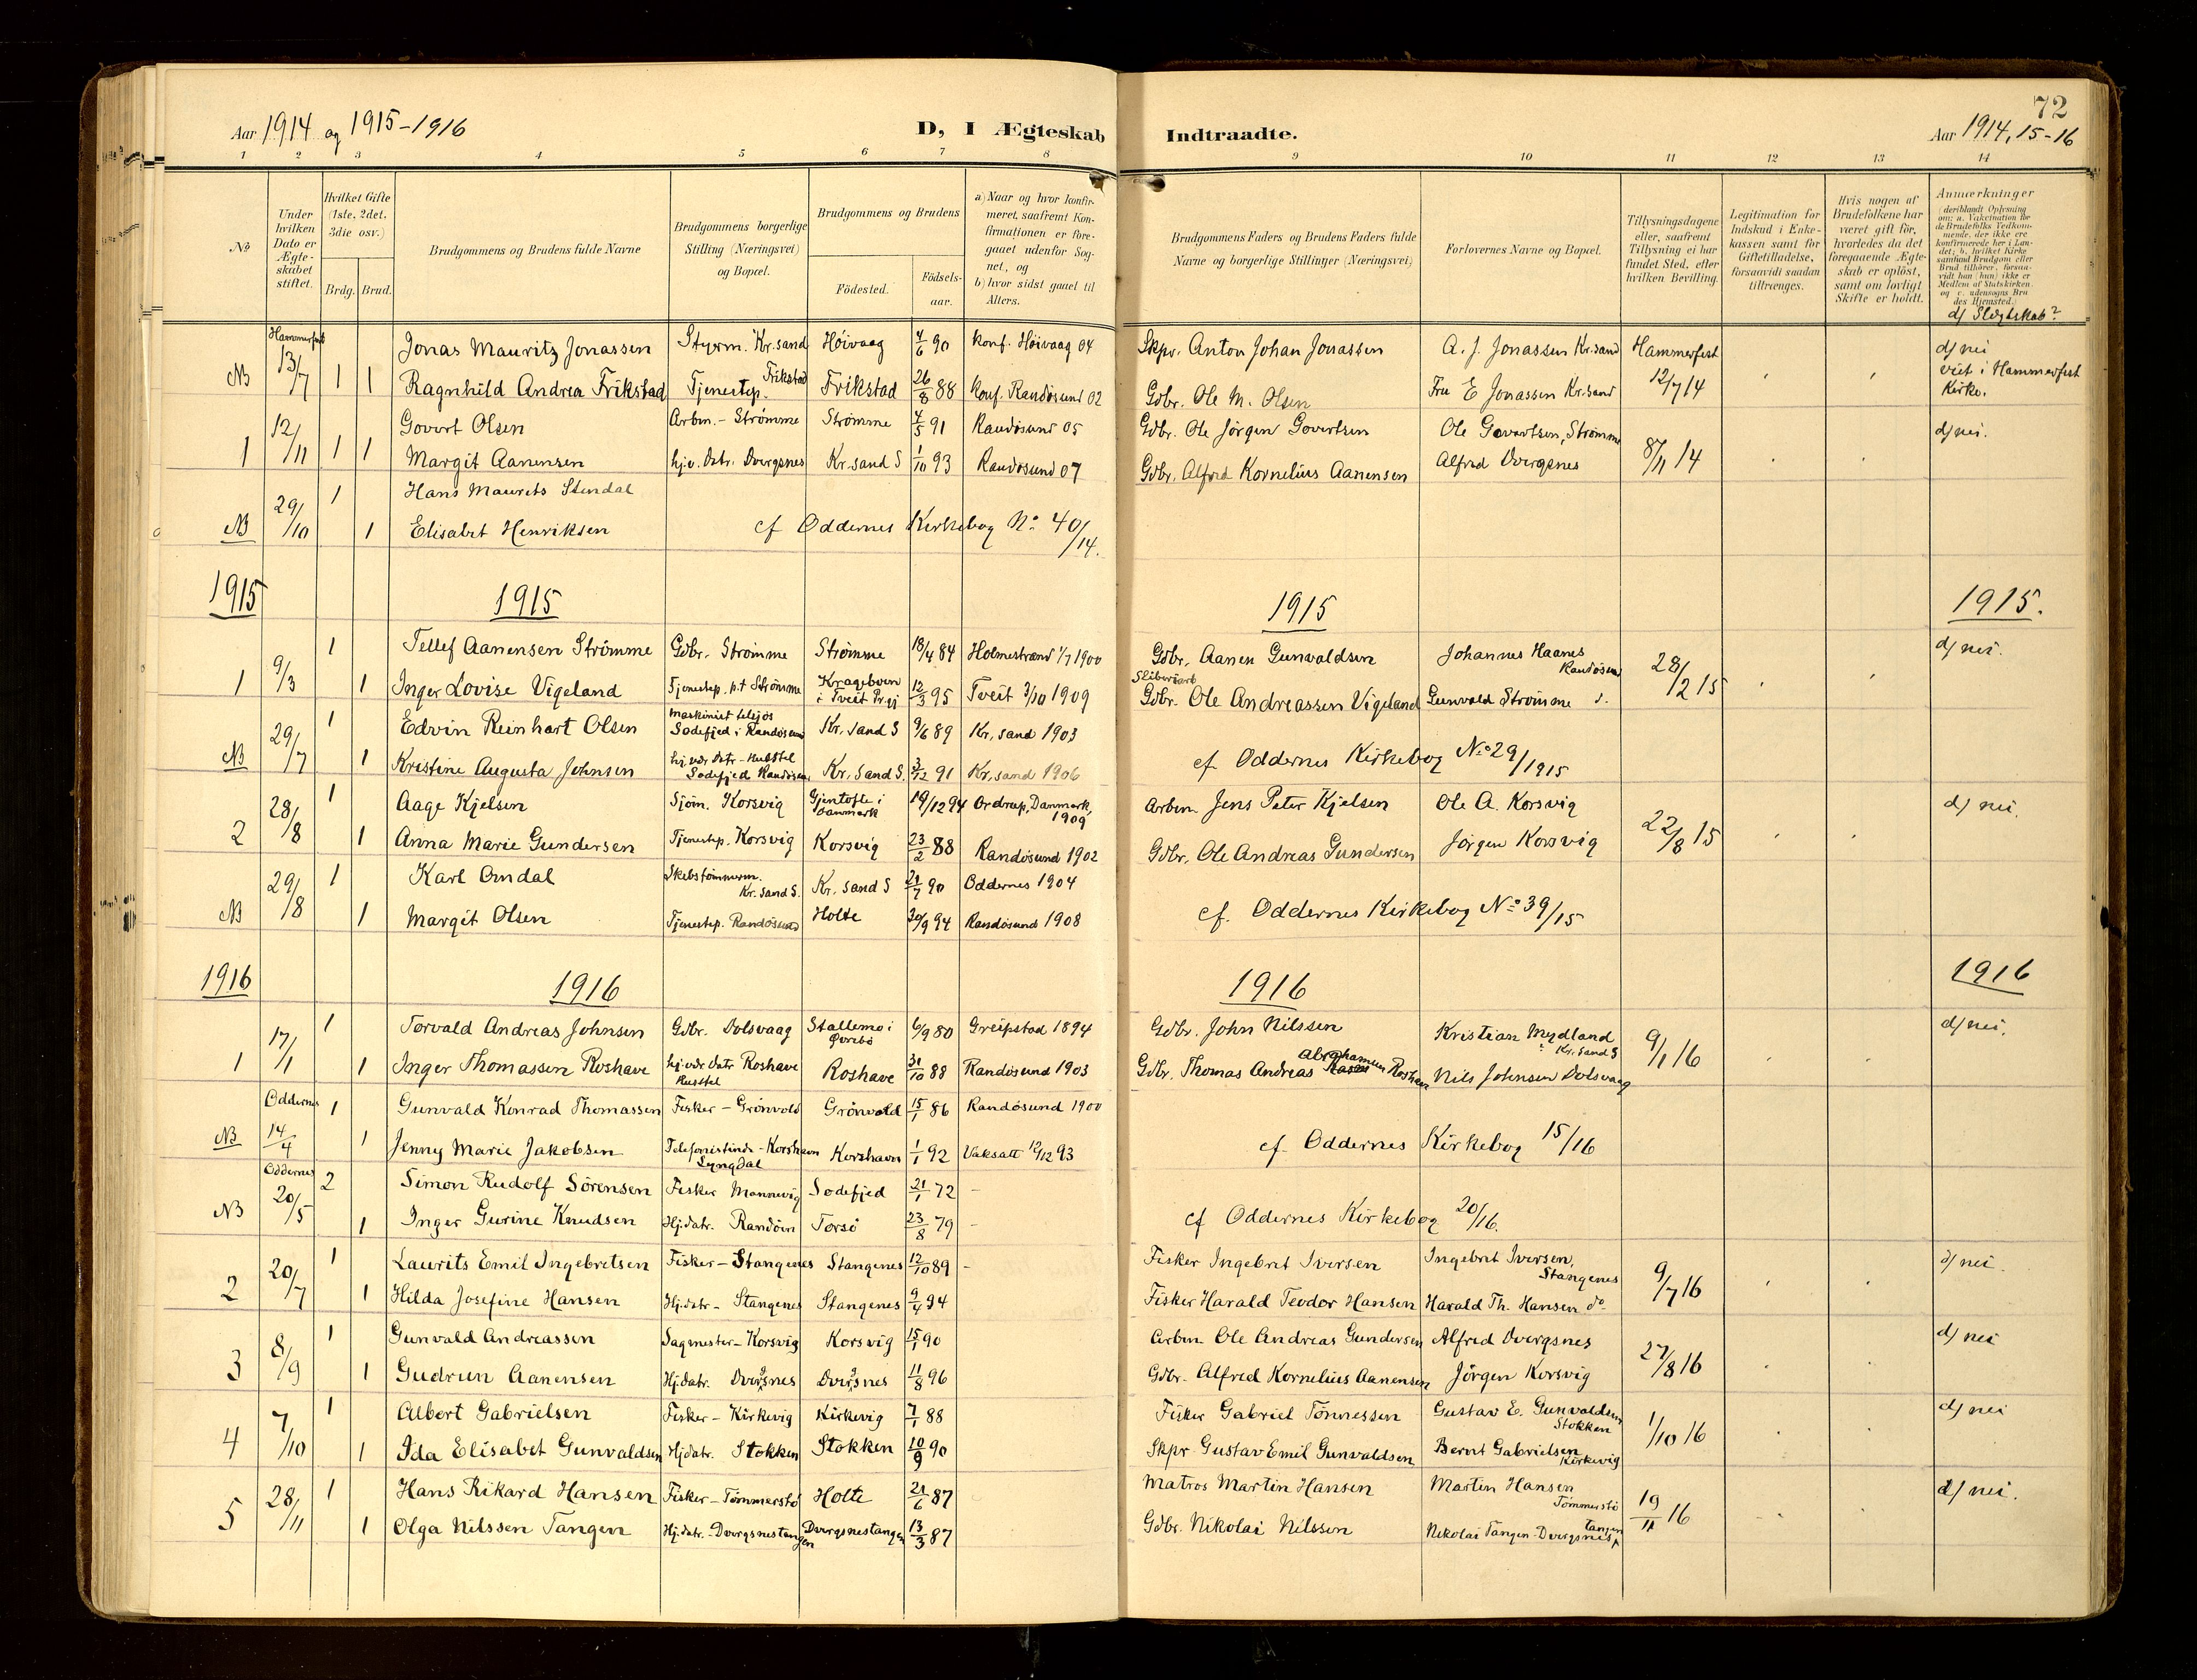 72
Aar 1914 og 1915-1916
D, I Ægteskab Indtraadte.
Aar 1914, 15-16
1 2 3 4 5 6 7 8 9 10 11 12 13 14
No
Under hvilken Dato er Ægteskabet stiftet.
Hvilket Gifte (1ste, 2det, 3die osv.)
Brdg. Brud.
Brudgommens og Brudens fulde Navne
Brudgommens borgerlige Stilling (Næringsvei) og Bopæl.
Brudgommens og Brudens
Födested. Födsels-aar.
a) Naar og hvor konfirmeret, saafremt Konfirmationen er foregaaet udenfor Sognet, og b) hvor sidst gaaet til Alters.
Brudgommens Faders og Brudens Faders fulde Navne og borgerlige Stillinger (Næringsvei)
Forlovernes Navne og Bopæl.
Tillysningsdagene eller, saafremt Tillysning ei har fundet Sted, efter hvilken Bevilling.
Legitimation for Indskud i Enkekassen samt for Giftetilladelse, forsaavidt saadan tiltrænges.
Hvis nogen af Brudefolkene har været gift för, hvorledes da det foregaaende Ægteskab er oplöst, samt om lovligt Skifte er holdt.
Anmærkninger (deriblandt Oplysning om: a. Vakcination for de Brudefolks Vedkommende, der ikke ere konfirmerede her i Landet; b. hvilket Kirkesamfund Brudgom eller Brud tilhörer, forsaavidt han (hun) ikke er Medlem af Statskirken og c. udensogns Brudes Hjemsted.)
d) Slegtskab?
Hammerfest
Jonas Mauritz Jonassen Styrm. Kr.sand Höivaag 4/6 90 konf. Höivaag 04 Skpr. Anton Johan Jonassen A. J. Jonassen Kr.sand Hammerfest d) nei
NB 13/7 1 1 Ragnhild Andrea Frikstad Tjenestep. Frikstad Frikstad 26/8 88 konf. Randösund 02 Gdbr. Ole M. Olsen Fru E Jonassen Kr.sand 12/7 14 viet i Hammerfest Kirke.
Govert Olsen Arbm. - Strömme Strömme 4/5 91 Randösund 05 Gdbr. Ole Jörgen Govertsen Ole Govertsen, Strömme d) nei.
1 12/11 1 1 Margit Aanensen hjv. Datr. Dvergsnes Kr.sand S 1/10 93 Randösund 07 Gdbr. Alfred Kornelius Aanensen Alfred Dvergsnes 8/11 14
1 Hans Maurits Stendal
NB 29/10 1 Elisabet Henriksen cf Oddernes Kirkebog No 40/14.
1915 1915 1915 1915.
1 Tellef Aanensen Strömme Gdbr. Strömme Strömme 18/4 84 Holmestrand 1/7 1900 Gdbr. Aanen Gunvaldsen Johannes Haanes Randösund d) nei.
1 9/3 1 Inger Lovise Vigeland Tjenestep. p.t Strömme Krageboen i Tveit Prgj 12/3 95 Tveit 3/10 1909 Gdbr. Ole Andreassen Vigeland Gunvald Strömme 28/2 15
1 Edvin Reinhart Olsen Maskinist Sodefjed i Randösund Kr. sand S 9/6 89 Kr. sand 1903
NB 29/7 1 Kristine Augusta Johnsen hj.vær. Datr - Sodefjed Randösund Kr. sand S. 3/12 91 Kr. sand 1906 cf. Oddernes Kirkebog No 29/1915
1 Aage Kjelsen Sjöm. Korsvig Gjentofte i Danmark 19/12 94 Ordrup, Danmark, 1909 Arbm. Jens Peter Kjelsen Ole A. Korsvig d) nei.
2 28/8 1 Anna Marie Gundersen Tjenestep. Korsvig Korsvig 23/2 88 Randösund 1902 Gdbr. Ole Andreas Gundersen Jörgen Korsvig 22/8 15
1 Karl Omdal Skibstömmerm. Kr. sand S. Kr. sand S 21/7 90 Oddernes 1904
NB 29/8 1 Margit Olsen Tjenestep. Randösund Holte 30/9 94 Randösund 1908 cf. Oddernes Kirkebog No 39/15
1916 1916 1916 1916
1 Torvald Andreas Johnsen Gdbr. Dolsvaag Stallemo i Övrebö 6/9 80 Greipstad 1894 Gdbr. John Nilssen Kristian Mydland Kr. sand S d) nei.
1 17/1 1 Inger Thomassen Roshave hj.vær datr Roshave Roshave 31/10 88 Randösund 1903 Gdbr. Thomas Andreas Abrahamsen Roshave Nils Johnsen Dolsvaag 9/1 16
Oddernes 1 Gunvald Konrad Thomassen Fisker - Grönvold Grönvold 15/1 86 Randösund 1900
NB 14/4 1 Jenny Marie Jakobsen Telefonistinde - Korshavn Lyngdal Korshavn 1/1 92 Vaksatt 12/12 93 cf. Oddernes Kirkebog 15/16
Oddernes 2 Simon Rudolf Sörensen Fisker Mannevig Sodefjed 21/1 72 -
NB 20/5 1 Inger Gurine Knudsen Hj.datr. Randöen Torsö 23/8 79 - cf Oddernes Kirkebog 20/16.
1 Laurits Emil Ingebretsen Fisker - Stangenes Stangenes 12/10 89 - Fisker Ingebret Iversen Ingebret Iversen, Stangenes d) nei.
2 20/7 1 Hilda Josefine Hansen Hj.datr - Stangenes Stangenes 9/4 94 Fisker Harald Teodor Hansen Harald Th. Hansen do 9/7 16
1 Gunvald Andreassen Sagmester - Korsvig Korsvig 15/1 90 Arbm Ole Andreas Gundersen Alfred Dvergsnes d) nei
3 8/9 1 Gudrun Aanensen Hj.datr. Dvergsnes Dvergsnes 11/8 96 Gdbr. Alfred Kornelius Aanensen Jörgen Korsvig 27/8 16
1 Albert Gabrielsen Fisker - Kirkevig Kirkevig 7/1 88 Fisker Gabriel Tönnessen Gustav E. Gunvaldsen Stokken d) nei
4 7/10 1 Ida Elisabet Gunvaldsen Hj.datr. Stokken Stokken 10/9 90 Skpr. Gustav Emil Gunvaldsen Bernt Gabrielsen Kirkevig 1/10 16
1 Hans Rikard Hansen Fisker - Tömmerstö Holte 21/6 87 Matros Martin Hansen Martin Hansen Tömmerstö d) nei.
5 28/11 1 Olga Nilssen Tangen Hj.datr. - Dvergsnestangen Dvergsnestangen 13/3 87 Gdbr. Nikolai Nilssen Nikolai Tangen - Dvergsnestangen 19/11 16